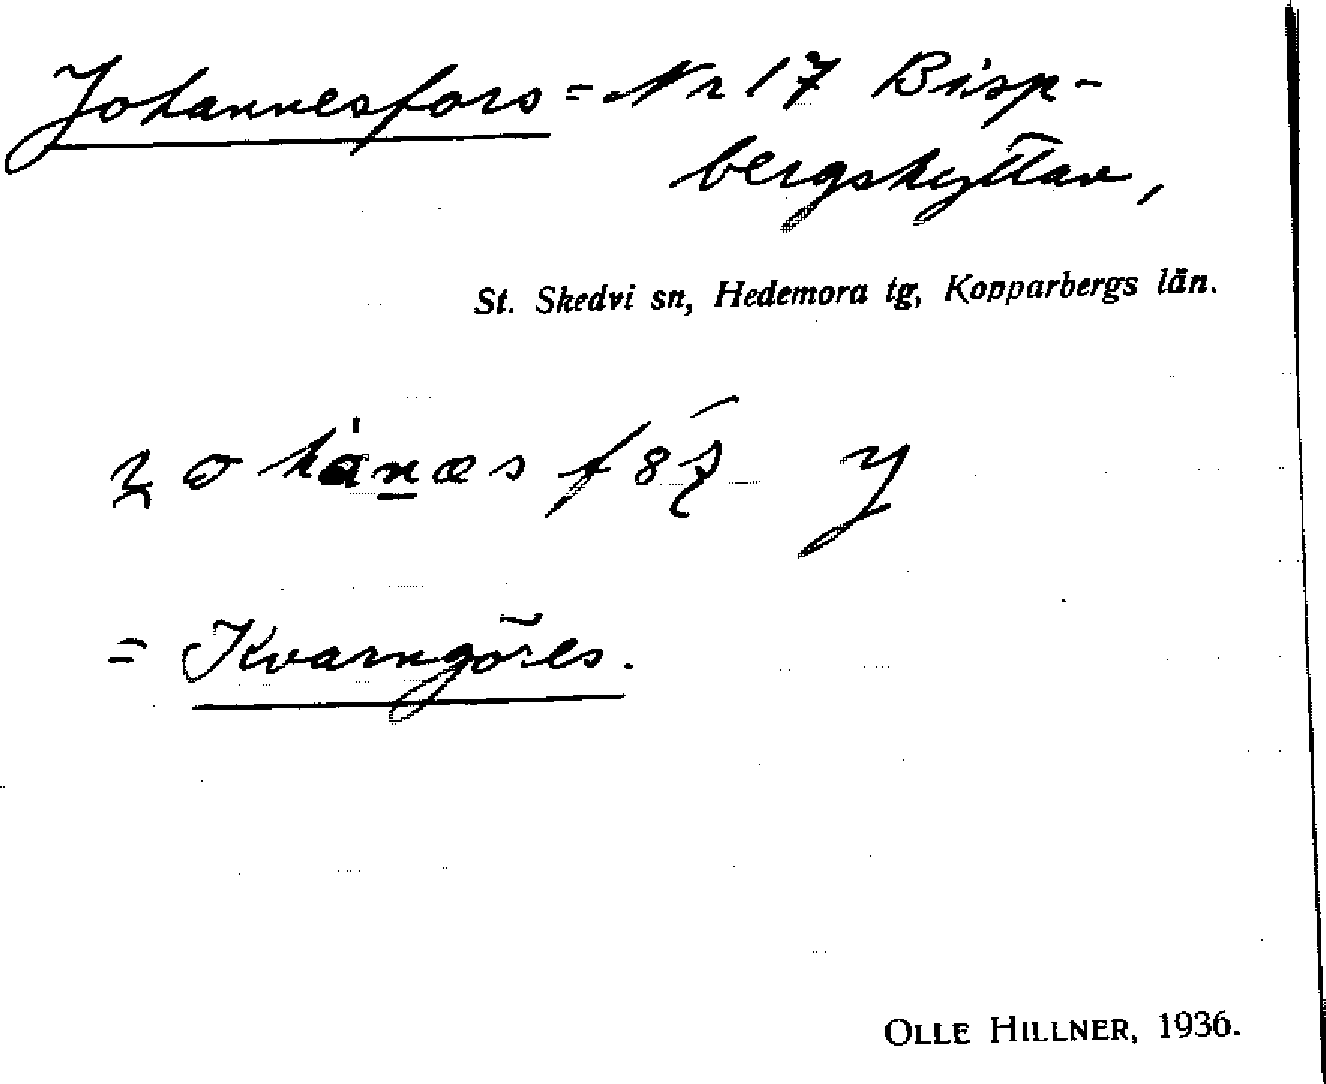 Johannesfors = Nr 17 Bisp-
bergshyttan,
St. Skedvi sn, Hedemora tg, Kopparbergs län.
y
= Kvarngöres.
OLLE HILLNER, 1936.